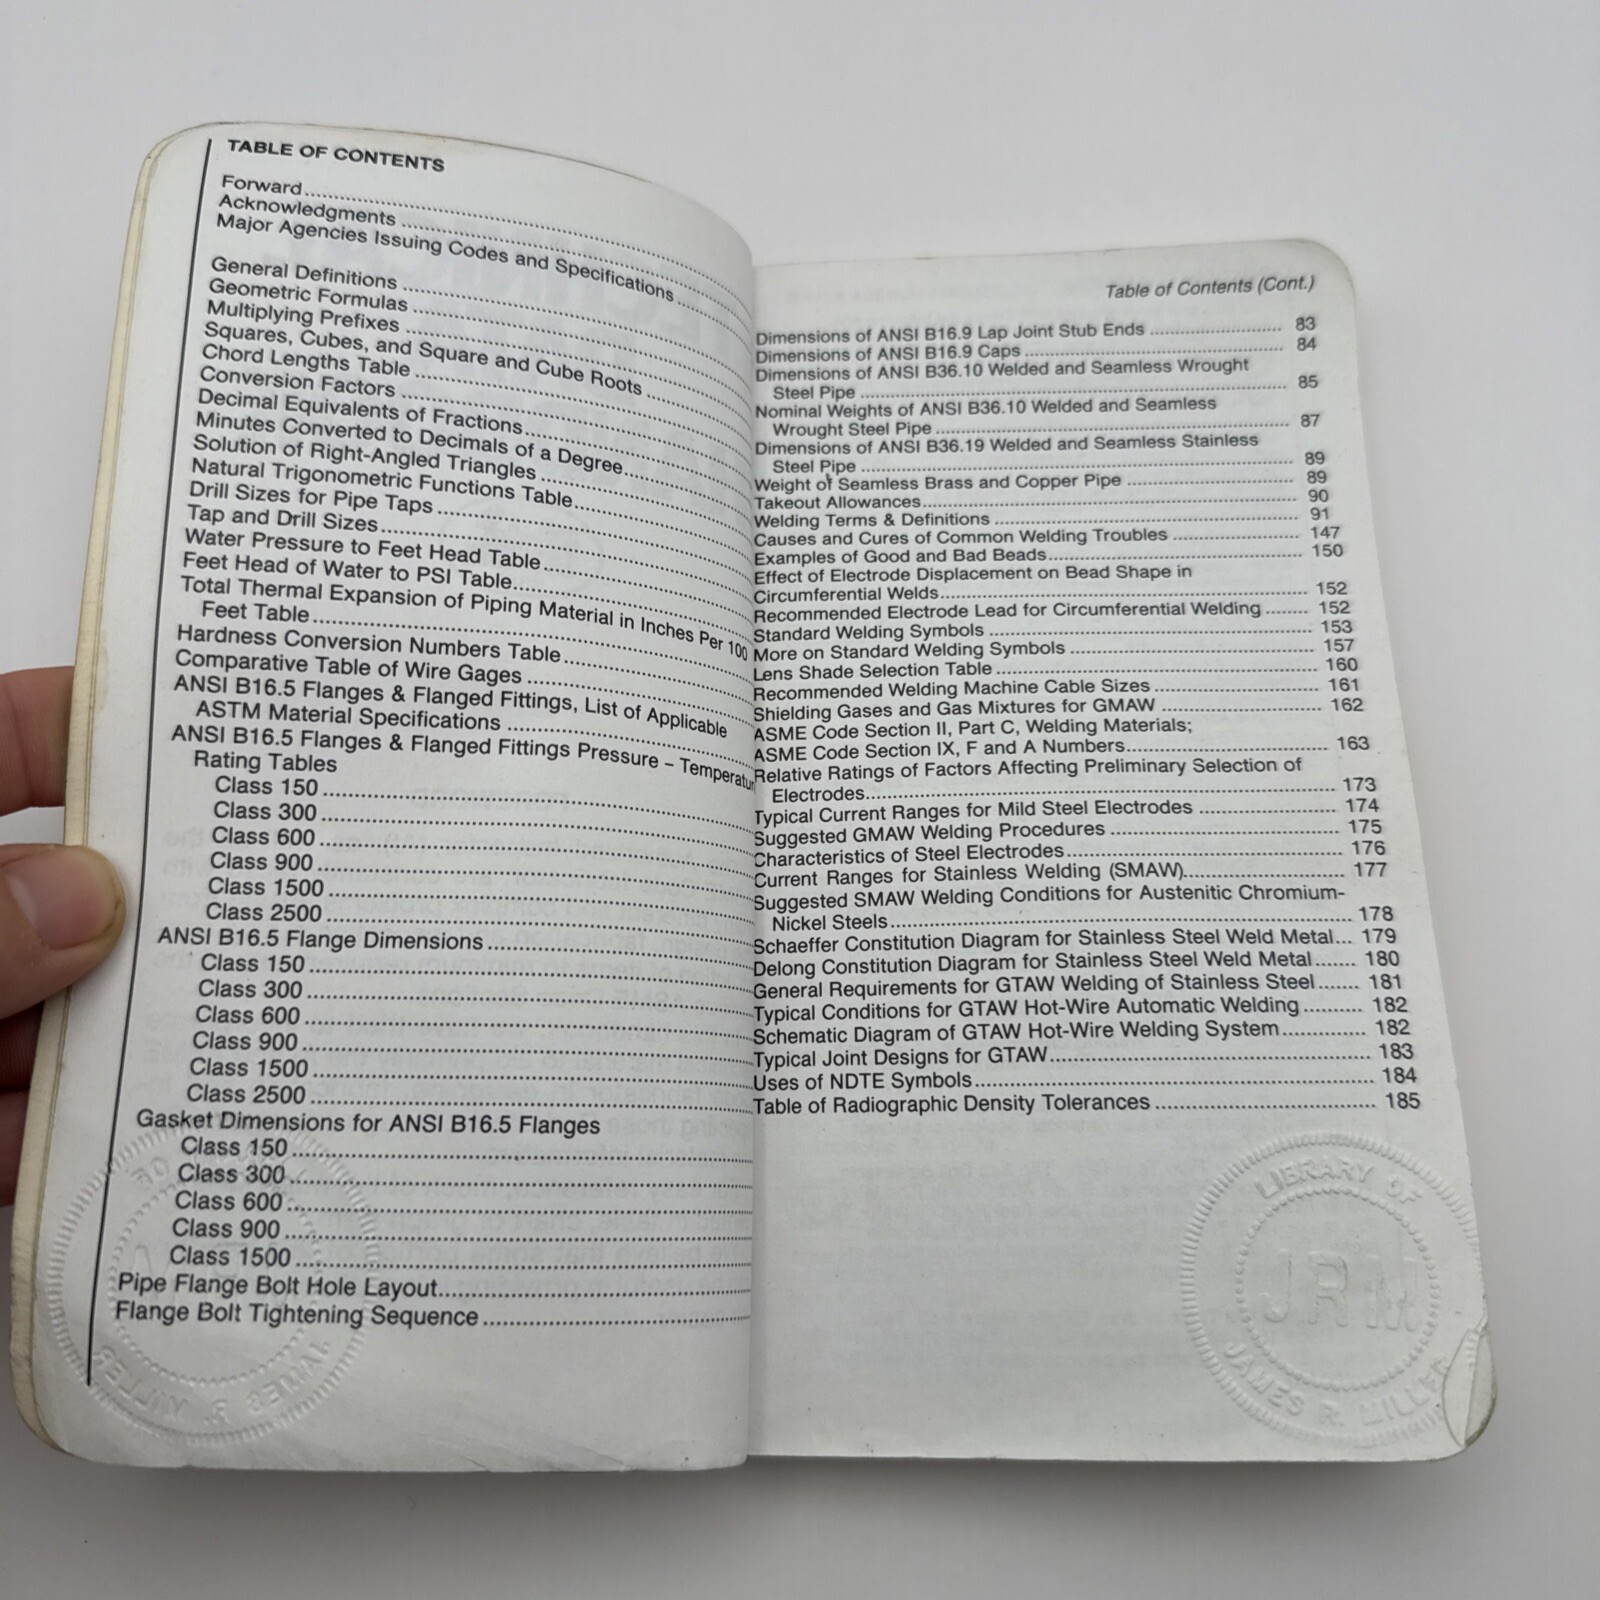 TABLE OF CONTENTS
Forward
Acknowledgments
Major Agencies Issuing Codes and Specifications
General Definitions
Geometric Formulas
Multiplying Prefixes
Squares, Cubes, and Square and Cube Roots
Chord Lengths Table
Conversion Factors
Decimal Equivalents of Fractions
Minutes Converted to Decimals of a Degree
Solution of Right-Angled Triangles
Natural Trigonometric Functions Table
Drill Sizes for Pipe Taps
Tap and Drill Sizes
Water Pressure to Feet Head Table
Feet Head of Water to PSI Table
Total Thermal Expansion of Piping Material in Inches Per 100
Feet Table
Hardness Conversion Numbers Table
Comparative Table of Wire Gages
ANSI B16.5 Flanges & Flanged Fittings, List of Applicable
ASTM Material Specifications
ANSI B16.5 Flanges & Flanged Fittings Pressure – Temperatur
Rating Tables
Class 150
Class 300
Class 600
Class 900
Class 1500
Class 2500
ANSI B16.5 Flange Dimensions
Class 150
Class 300
Class 600
Class 900
Class 1500
Class 2500
Gasket Dimensions for ANSI B16.5 Flanges
Class 150
Class 300
Class 600
Class 900
Class 1500
Pipe Flange Bolt Hole Layout
Flange Bolt Tightening Sequence
JAMES R. MILLER
Table of Contents (Cont.)
Dimensions of ANSI B16.9 Lap Joint Stub Ends 83
Dimensions of ANSI B16.9 Caps 84
Dimensions of ANSI B36.10 Welded and Seamless Wrought
Steel Pipe 85
Nominal Weights of ANSI B36.10 Welded and Seamless
Wrought Steel Pipe 87
Dimensions of ANSI B36.19 Welded and Seamless Stainless
Steel Pipe 89
Weight of Seamless Brass and Copper Pipe 89
Takeout Allowances 90
Welding Terms & Definitions 91
Causes and Cures of Common Welding Troubles 147
Examples of Good and Bad Beads 150
Effect of Electrode Displacement on Bead Shape in
Circumferential Welds 152
Recommended Electrode Lead for Circumferential Welding 152
Standard Welding Symbols 153
More on Standard Welding Symbols 157
Lens Shade Selection Table 160
Recommended Welding Machine Cable Sizes 161
Shielding Gases and Gas Mixtures for GMAW 162
ASME Code Section II, Part C, Welding Materials;
ASME Code Section IX, F and A Numbers 163
Relative Ratings of Factors Affecting Preliminary Selection of
Electrodes 173
Typical Current Ranges for Mild Steel Electrodes 174
Suggested GMAW Welding Procedures 175
Characteristics of Steel Electrodes 176
Current Ranges for Stainless Welding (SMAW) 177
Suggested SMAW Welding Conditions for Austenitic Chromium-
Nickel Steels 178
Schaeffer Constitution Diagram for Stainless Steel Weld Metal 179
Delong Constitution Diagram for Stainless Steel Weld Metal 180
General Requirements for GTAW Welding of Stainless Steel 181
Typical Conditions for GTAW Hot-Wire Automatic Welding 182
Schematic Diagram of GTAW Hot-Wire Welding System 182
Typical Joint Designs for GTAW 183
Uses of NDTE Symbols 184
Table of Radiographic Density Tolerances 185
LIBRARY OF
JRM
JAMES R. MILLER